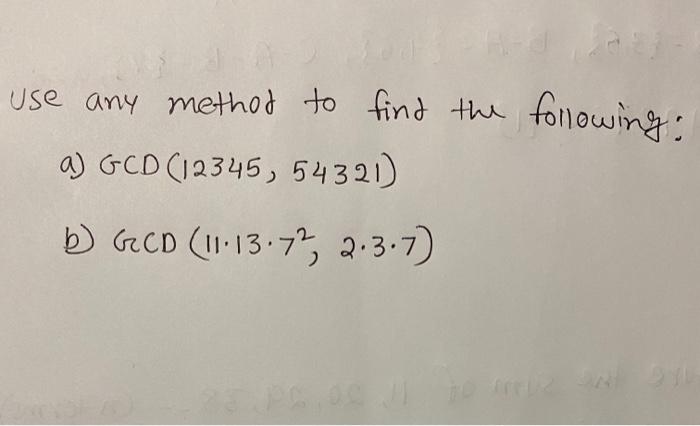 Use any method to find the following:
a) GCD (12345, 54321)
b) GCD (11·13·7², 2·3·7)